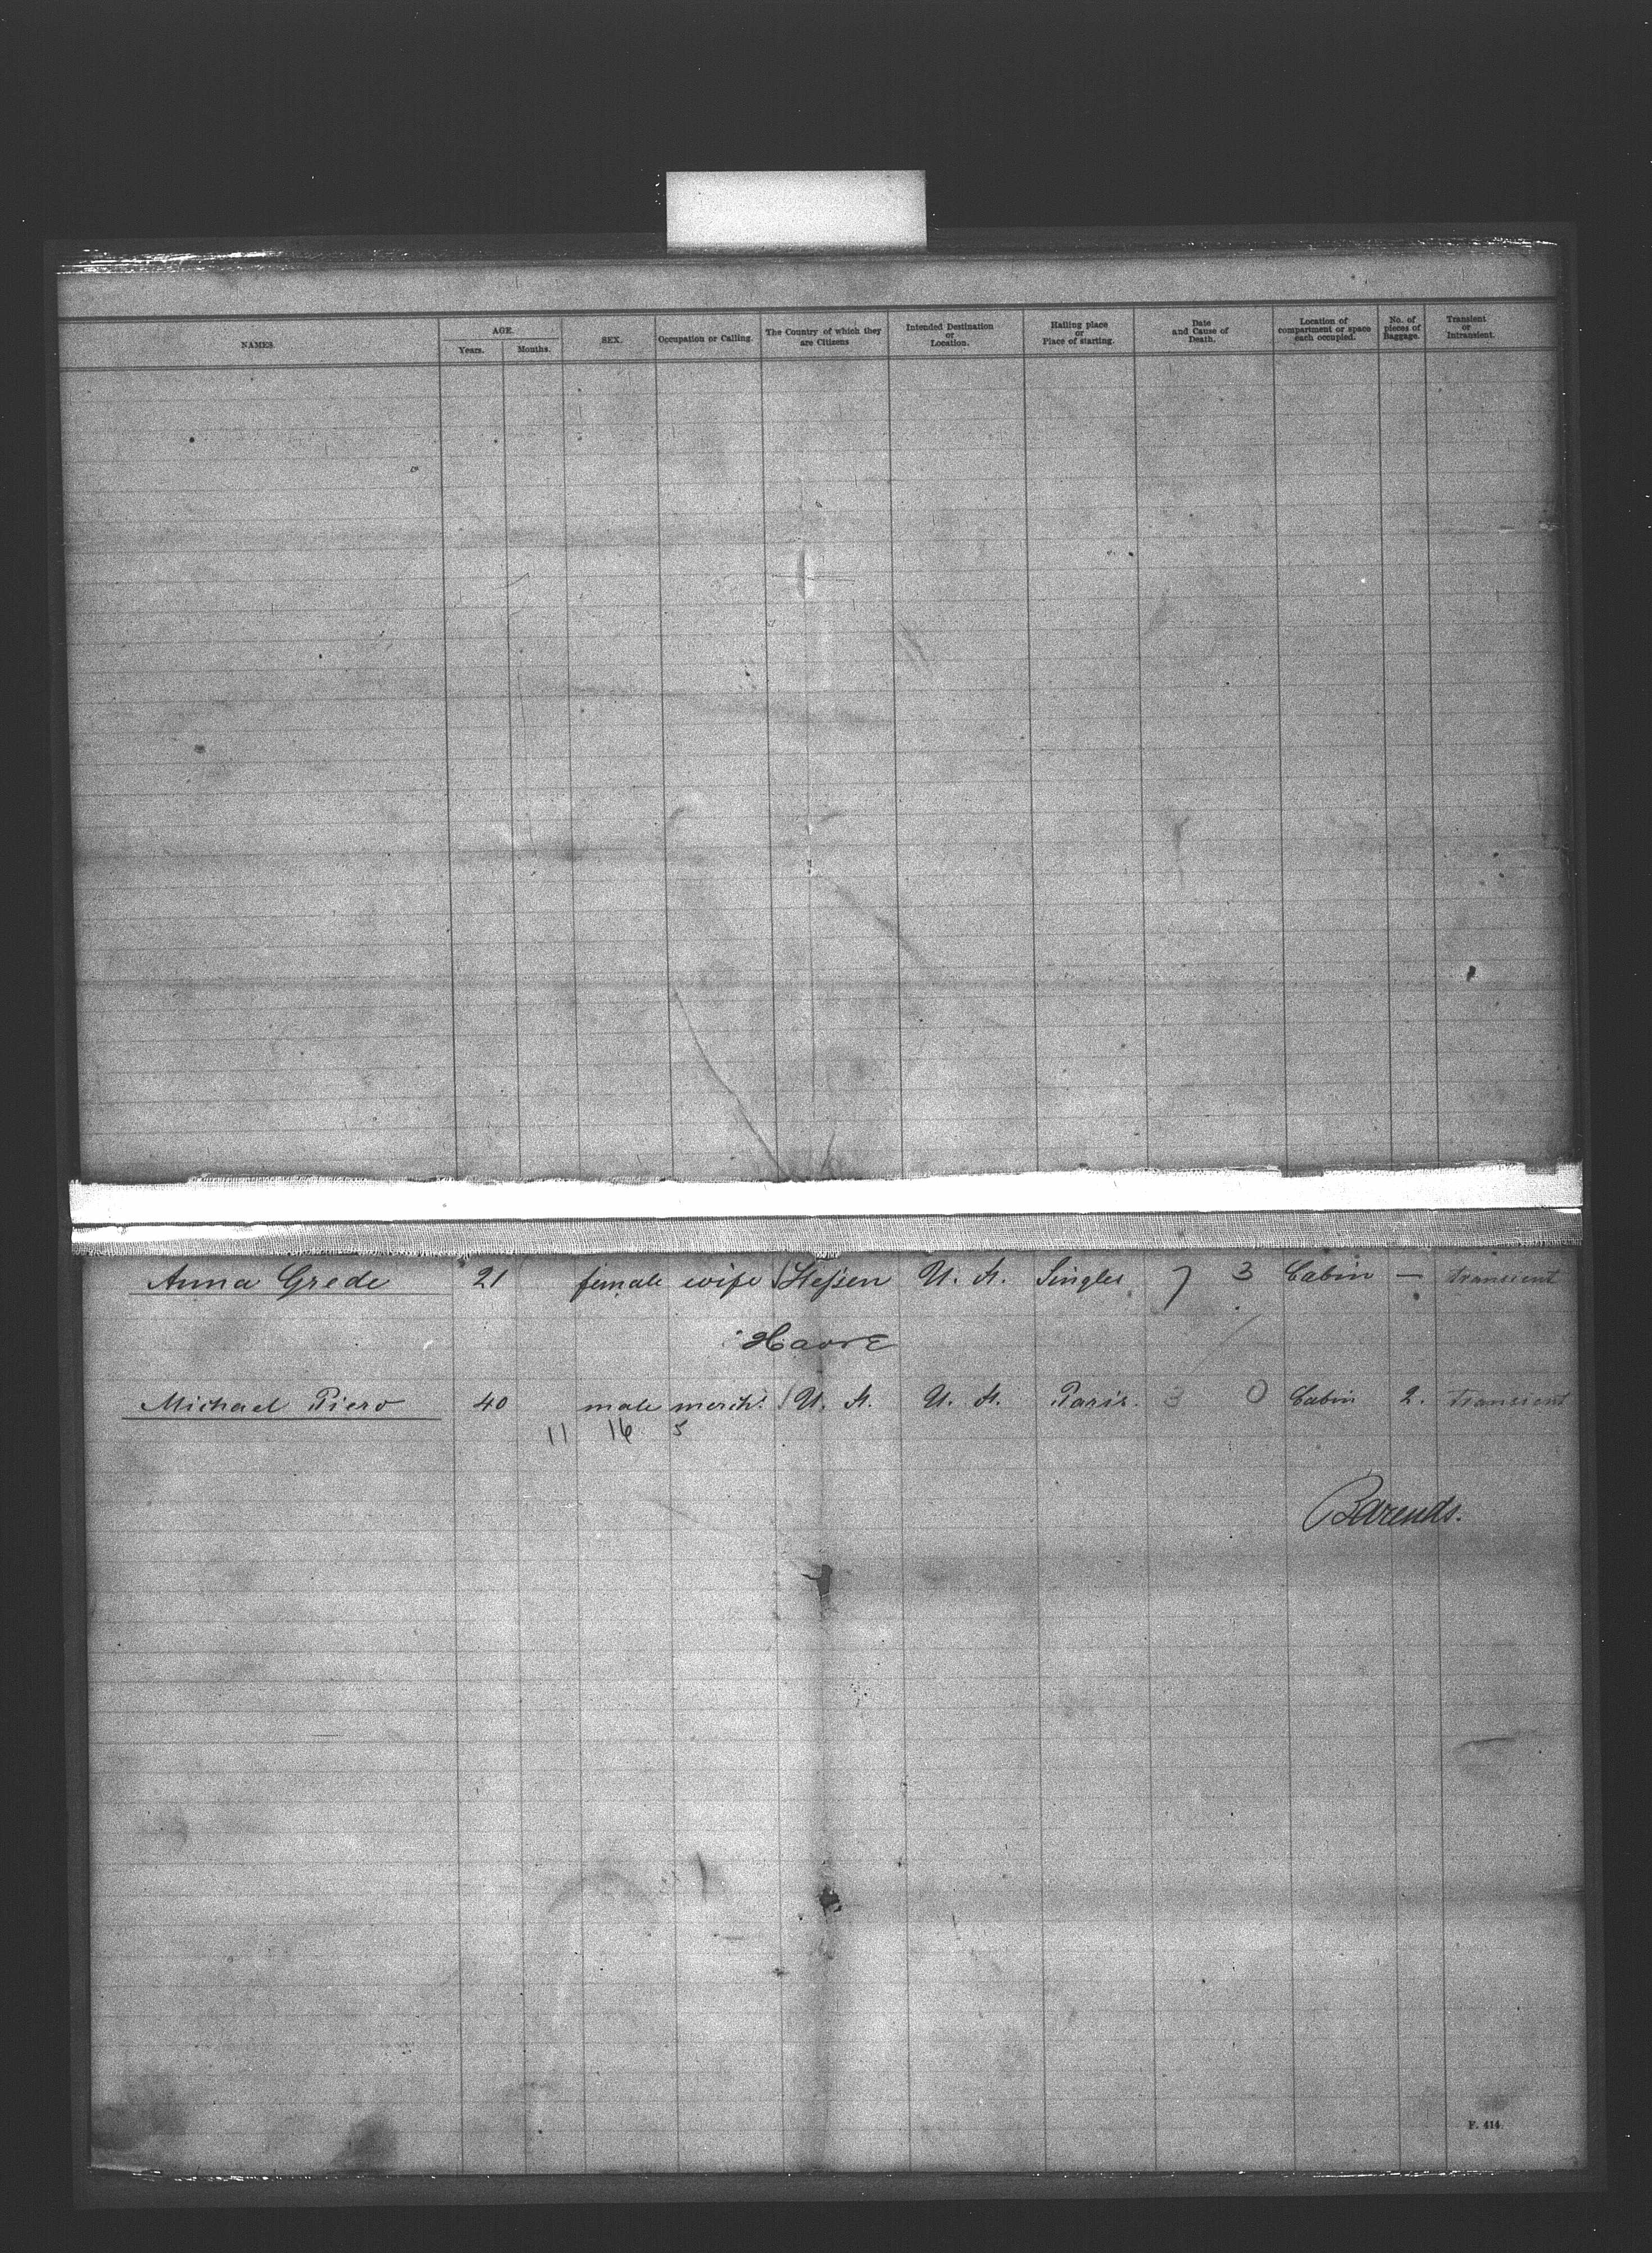 NAMES. AGE. Years. Months. SEX. Occupation or Calling. The Country of which they are Citizens Intended Destination or Location. Hailing place or Place of starting. Date and Cause of Death. Location of compartment or space each occupied. No. of pieces of Baggage. Transient or Intransient.
Anna Grede 21 female wife Hessen U. A. Singles 7 3 Cabin — transient
Havre
Michael Piero 40 male merch. U. A. U. A. Paris. 3 0 Cabin 2. transient
11 16 5
Barends.
F. 414.